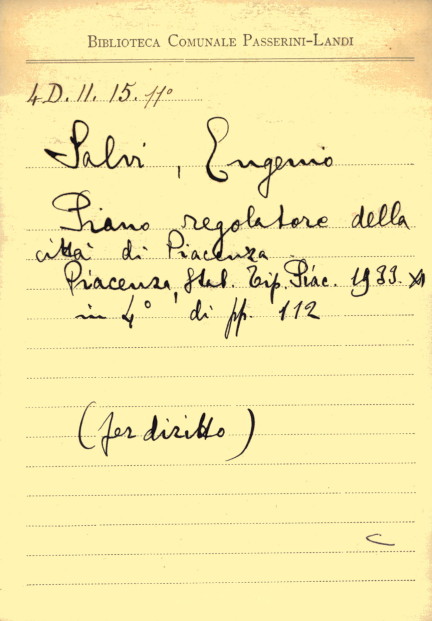 BIBLIOTECA COMUNALE PASSERINI-LANDI
4 D. II. 15. 11°
Salvi, Eugenio
Piano regolatore della
città di Piacenza
Piacenza, Stab. Tip. Piac. 1933. XI
in 4° di pp. 112
(per diritto)
C